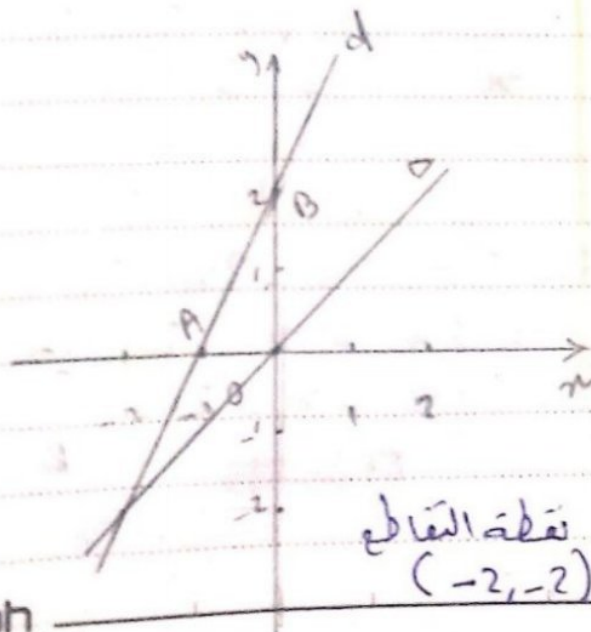 d
y
Δ
2 B
1
A
O
x
-2 -1 1 2
-1
-2
نقطة التقاطع
(-2,-2)